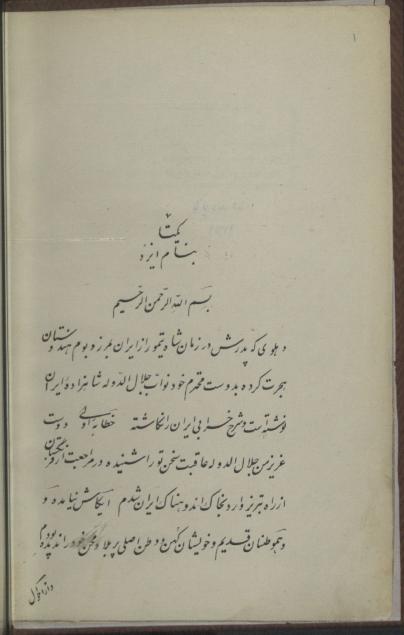 ۱
یکتا
بنام ایزد
بسم الله الرحمن الرحیم
دهلوی که پدرش در زمان شاه تیمور از ایران بمرز و بوم هندوستان
هجرت کرده بدوست محترم خود نواب جلال الدوله شاهزاده ایران
نوشته است و شرح خرابی ایران را نگاشته خطابه اولی دوست
عزیز من جلال الدوله عاقبت سخن تو را شنیده در مراجعت از فرنگستان
از راه تبریز وارد خاک اندوهناک ایران شدم ایکاش نیامده و
و هموطنان قدیم و خویشان کهن و وطن اصلی پر بلا و محن خود را ندیده بودم